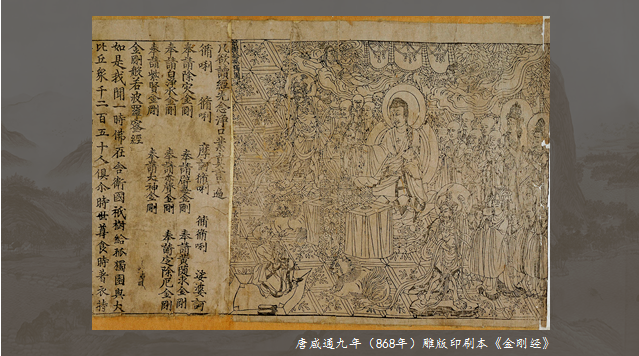 凡欲讀經先念淨口業真言一遍
脩唎 脩唎 摩訶脩唎 脩脩唎 娑婆訶
奉請除灾金剛 奉請辟毒金剛 奉請黄隨求金剛
奉請白淨水金剛 奉請赤聲金剛 奉請定除厄金剛
奉請紫賢金剛 奉請大神金剛
金剛般若波羅蜜經
如是我聞一時佛在舍衛國祇樹給孤獨園與大
比丘衆千二百五十人俱尒時世尊食時著衣持
唐咸通九年（868年）雕版印刷本《金刚经》